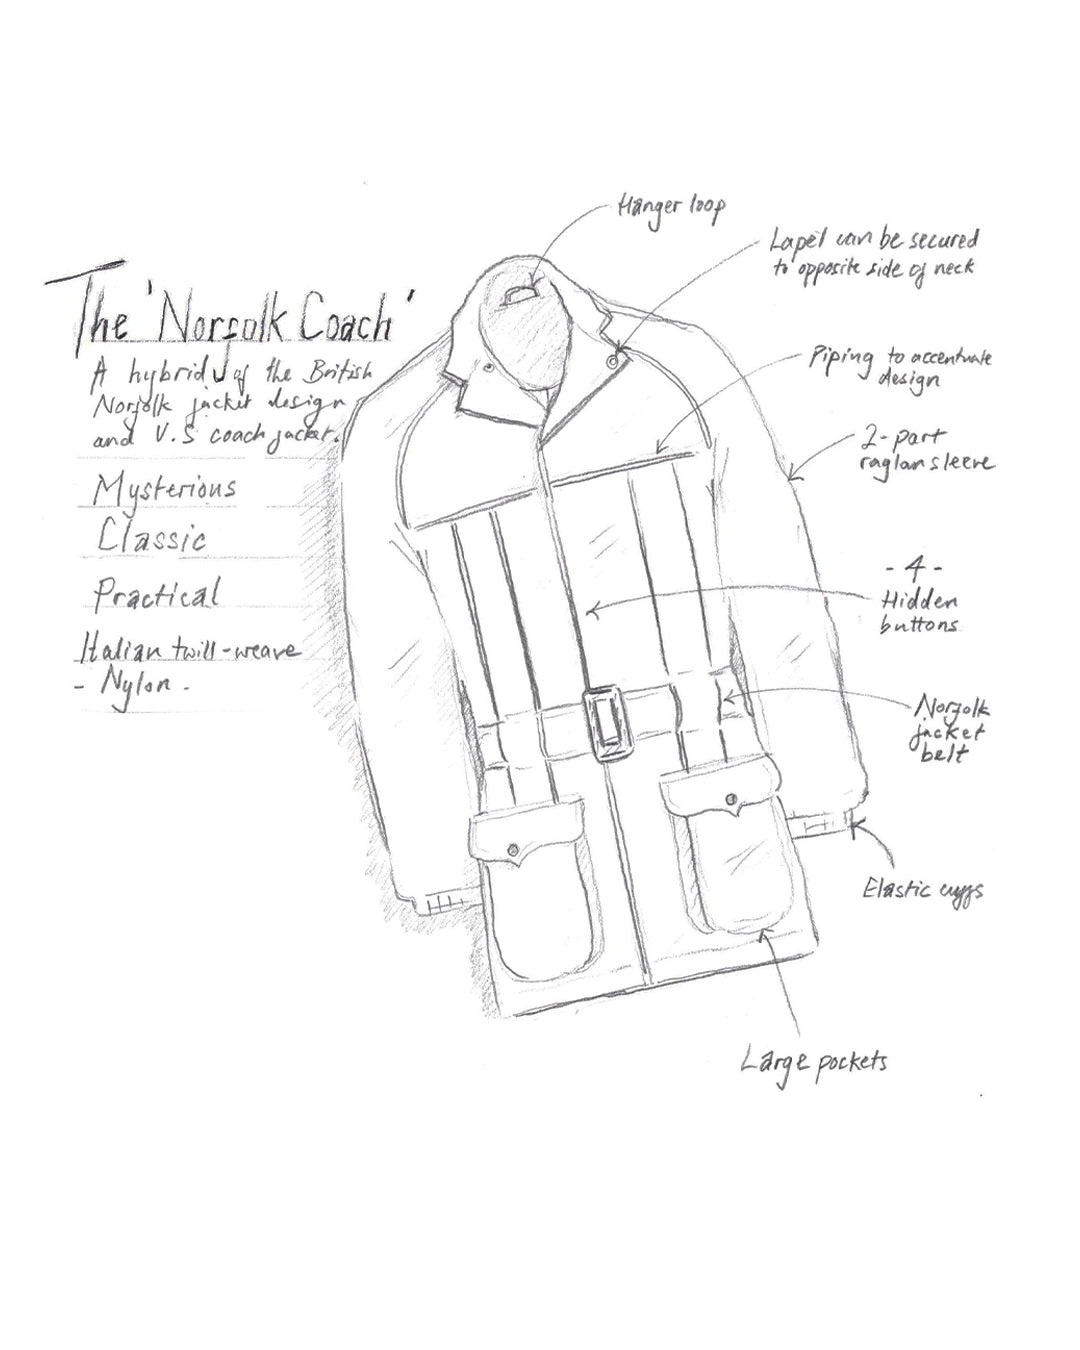 Hanger loop
Lapel can be secured
to opposite side of neck
The 'Norfolk Coach'
A hybrid of the British
Norfolk jacket design
and U.S coach jacket.
Piping to accentuate
design
2-part
raglan sleeve
Mysterious
Classic
Practical
Italian twill-weave
- Nylon -
- 4 -
Hidden
buttons
Norfolk
jacket
belt
Elastic cuffs
Large pockets